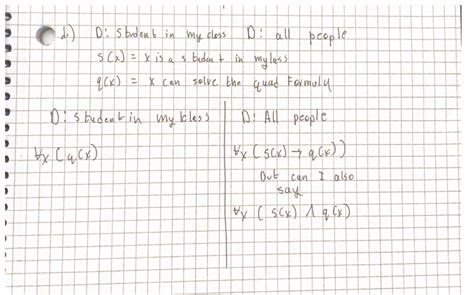 d.) D: student in my class D: all people
s(x) = x is a student in myless
q(x) = x can solve the quad Formuly
D: student in my class
∀x (q(x)
D: All people
∀x (s(x) → q(x))
But can I also
say
∀x (s(x) ∧ q(x)